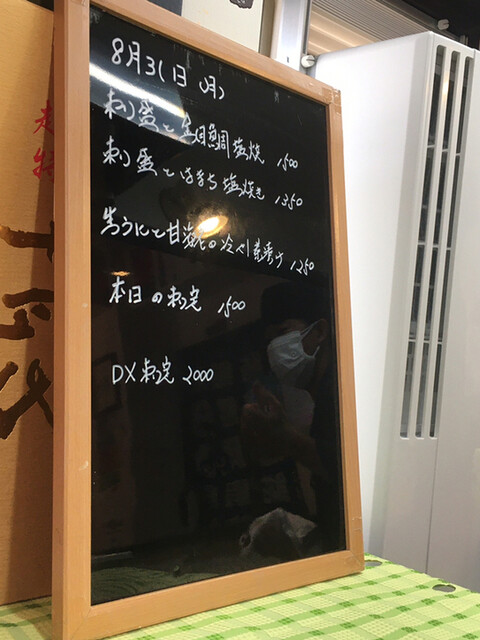 8月31日(月)
刺盛と金目鯛塩焼 1500
刺盛とはまち塩焼き 1350
生うにと甘海老の冷やし茶漬け 1250
本日の刺定 1500
DX刺定 2000
十四代